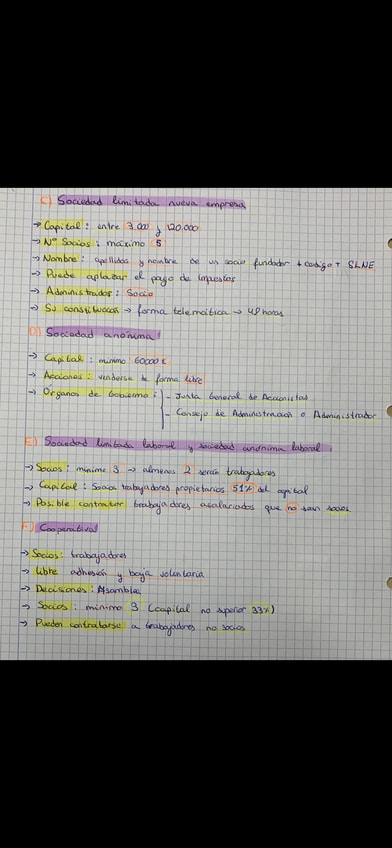 C) Sociedad limitada nueva empresa
→ Capital: entre 3.000 y 120.000
→ Nº Socios: máximo 5
→ Nombre: apellidos y nombre de un socio fundador + codigo + SLNE
→ Puede aplazar el pago de impuestos
→ Administrador: Socio
→ Su constitución → forma telemática → 48 horas
D) Sociedad anónima:
→ Capital: mínimo 60000 €
→ Acciones: venderse de forma libre
→ Órganos de Gobierno: - Junta General de Accionistas
- Consejo de Administración o Administrador
E) Sociedad limitada laboral y sociedad anónima laboral:
→ Socios: mínimo 3 → almenos 2 serán trabajadores
→ Capital: Socios trabajadores propietarios 51% del capital
→ Posible contratar trabajadores asalariados que no sean socios
F) Cooperativa:
→ Socios: trabajadores
→ libre adhesión y baja voluntaria
→ Decisiones: Asamblea
→ Socios: mínimo 3 (capital no superior 33%)
→ Pueden contratarse a trabajadores no socios